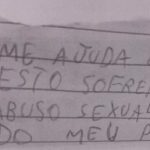 ME AJUDA
ESTO SOFRE
ABUSO SEXUAL
DO MEU P